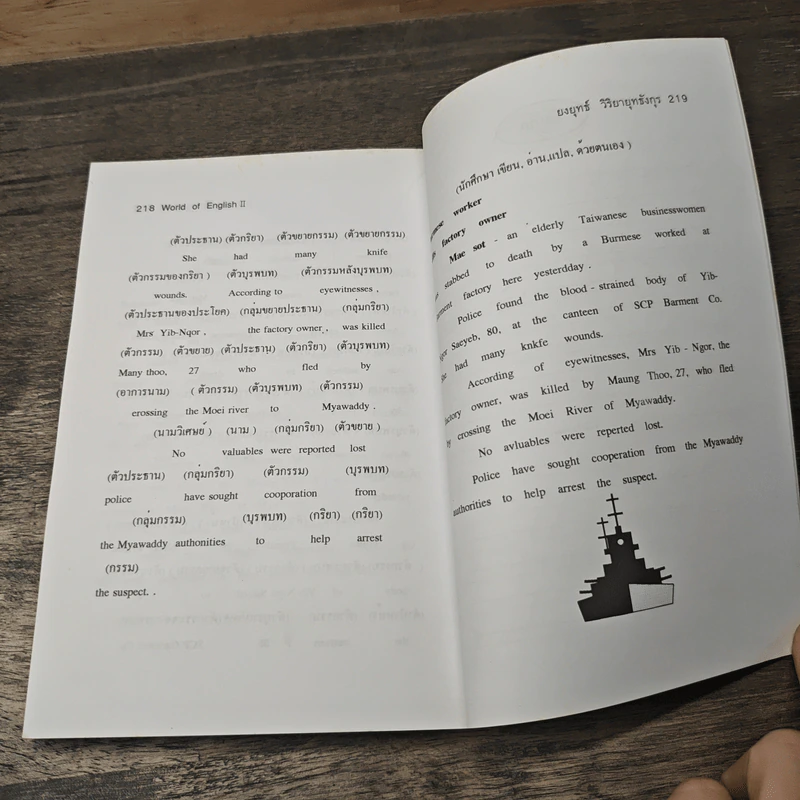 218 World of English II
(ตัวประธาน) (ตัวกริยา) (ตัวขยายกรรม) (ตัวขยายกรรม)
She had many knife
(ตัวกรรมของกริยา ) (ตัวบุรพบท) (ตัวกรรมหลังบุรพบท)
wounds. According to eyewitnesses ,
(ตัวประธานของประโยค) (กลุ่มขยายประธาน) (กลุ่มกริยา)
Mrs Yib-Nqor , the factory owner , was killed
(ตัวกรรม) (ตัวขยาย) (ตัวประธาน) (ตัวกริยา) (ตัวบุรพบท)
Many thoo, 27 who fled by
(อาการนาม) ( ตัวกรรม) (ตัวบุรพบท) (ตัวกรรม)
erossing the Moei river to Myawaddy .
(นามวิเศษย์ ) (นาม ) (กลุ่มกริยา) (ตัวขยาย )
No valuables were reported lost
(ตัวประธาน) (กลุ่มกริยา) (ตัวกรรม) (บุรพบท)
police have sought cooporation from
(กลุ่มกรรม) (บุรพบท) (กริยา) (กริยา)
the Myawaddy authonities to help arrest
(กรรม)
the suspect. .
ยงยุทธ์ วิริยายุทธังกุร 219
(นักศึกษา เขียน, อ่าน,แปล, ด้วยตนเอง )
worker
factory owner
Mae sot - an elderly Taiwanese businesswomen
stabbed to death by a Burmese worked at
factory here yesterdday .
Police found the blood - strained body of Yib-
Saeyeb, 80, at the canteen of SCP Barment Co.
had many knkfe wounds.
According of eyewitnesses, Mrs Yib - Ngor, the
owner, was killed by Maung Thoo, 27, who fled
crossing the Moei River of Myawaddy.
No avluables were reperted lost.
Police have sought cooperation from the Myawaddy
authonities to help arrest the suspect.